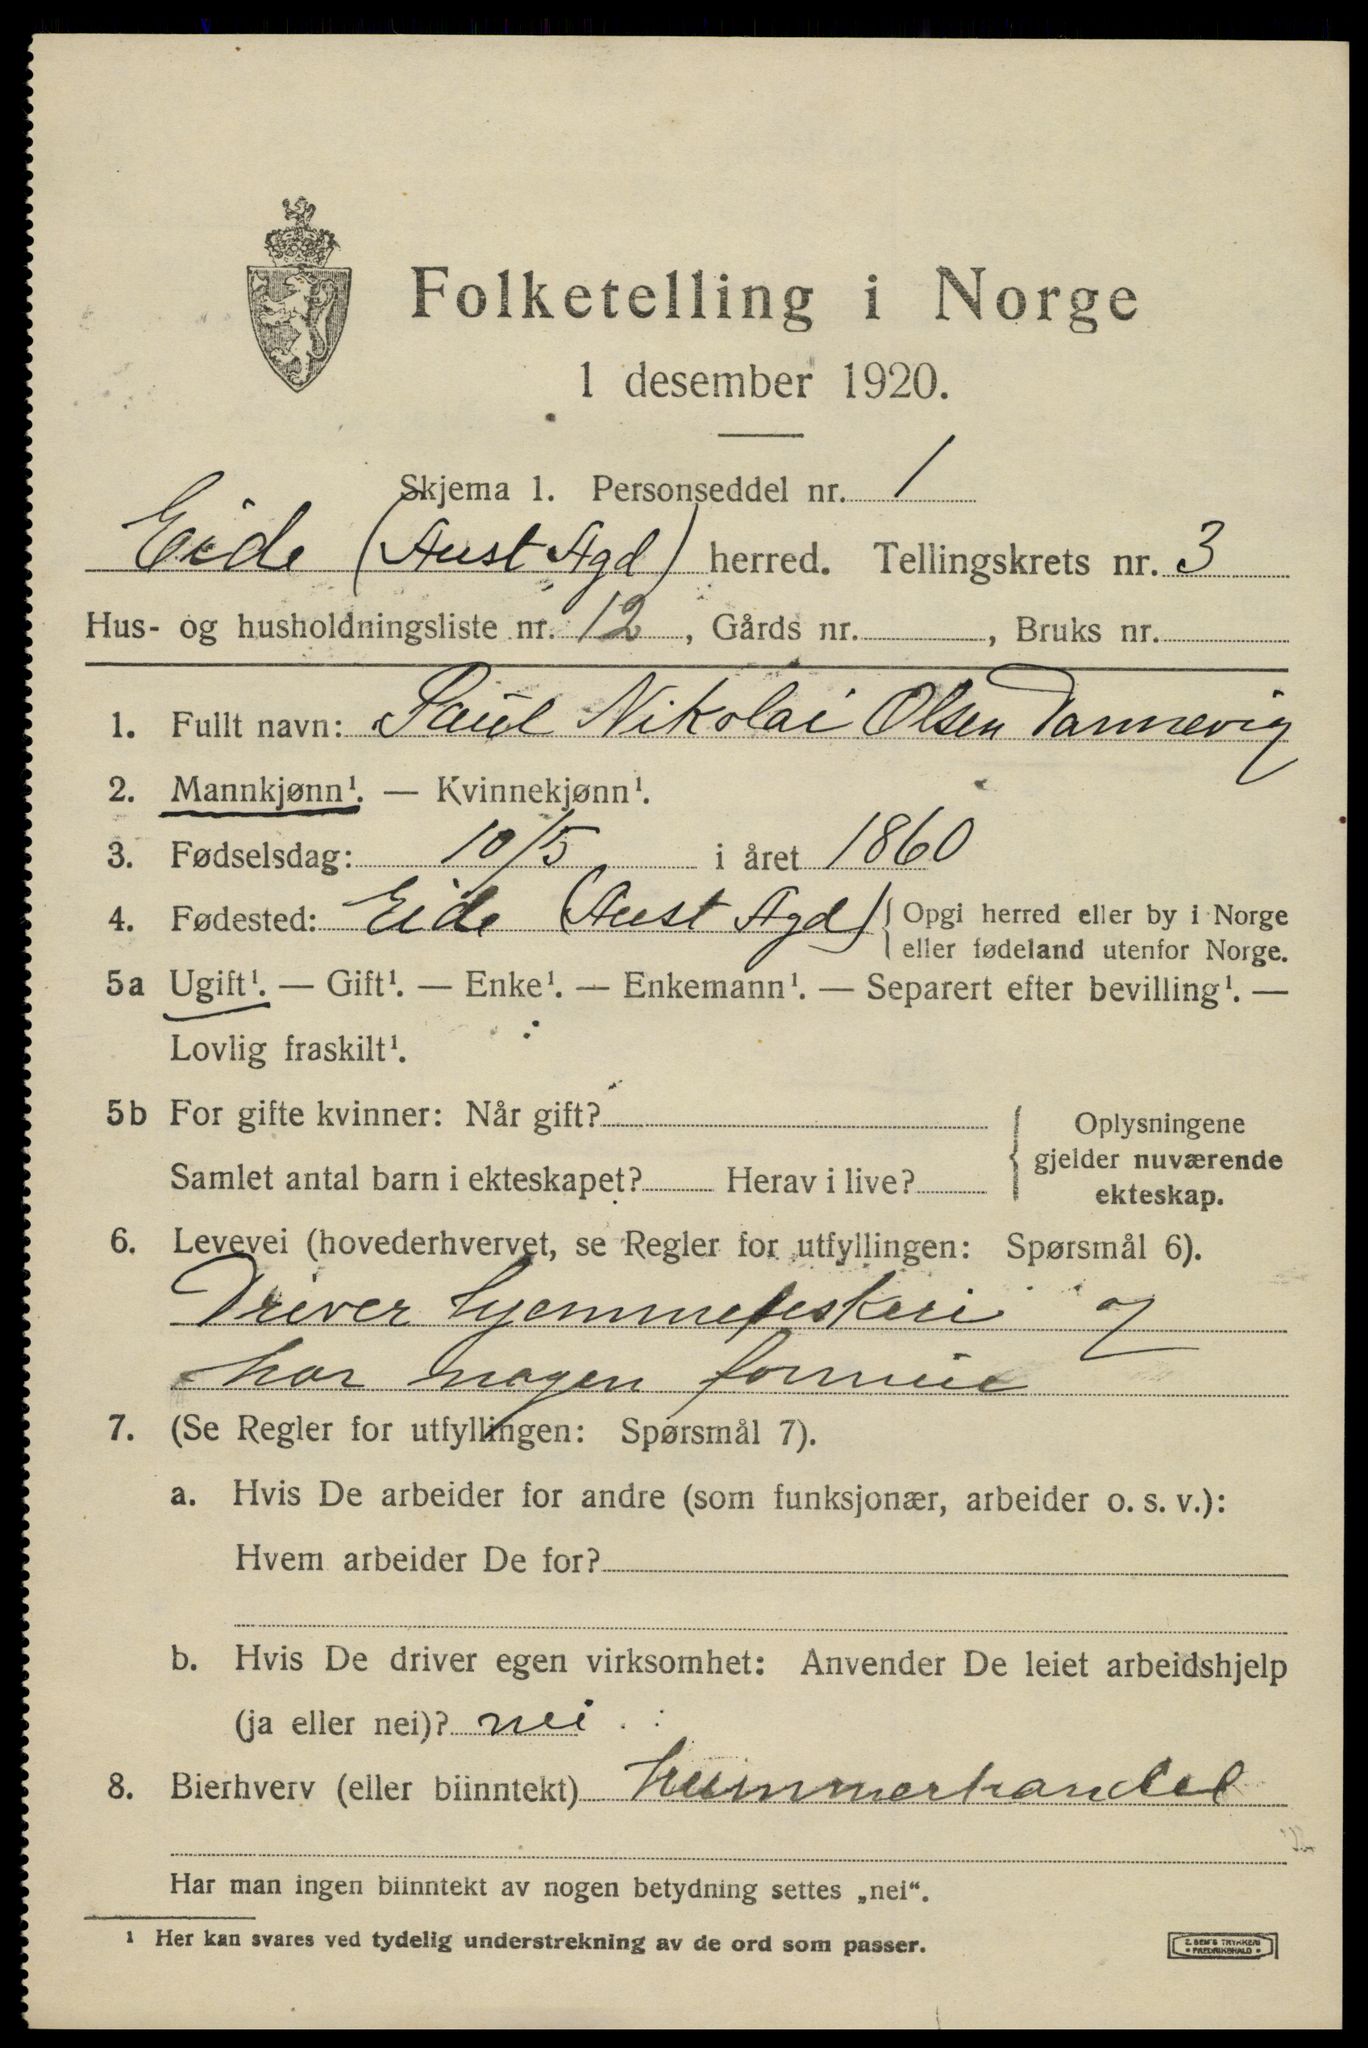 Folketelling i Norge
1 desember 1920.
Skjema 1. Personseddel nr. 1
Eide (Aust Agd) herred. Tellingskrets nr. 3
Hus- og husholdningsliste nr. 12, Gårds nr. , Bruks nr.
1. Fullt navn: Paul Nikolai Olsen Dannevig
2. Mannkjønn¹. — Kvinnekjønn¹.
3. Fødselsdag: 10/5 i året 1860
4. Fødested: Eide (Aust Agd) { Opgi herred eller by i Norge
eller fødeland utenfor Norge.
5a Ugift¹. — Gift¹. — Enke¹. — Enkemann¹. — Separert efter bevilling¹. —
Lovlig fraskilt¹.
5b For gifte kvinner: Når gift?
Samlet antal barn i ekteskapet? Herav i live?
Oplysningene
gjelder nuværende
ekteskap.
6. Levevei (hovederhvervet, se Regler for utfyllingen: Spørsmål 6).
Driver hjemmefiskeri og
har nogen formue
7. (Se Regler for utfyllingen: Spørsmål 7).
a. Hvis De arbeider for andre (som funksjonær, arbeider o. s. v.):
Hvem arbeider De for?
b. Hvis De driver egen virksomhet: Anvender De leiet arbeidshjelp
(ja eller nei)? nei
8. Bierhverv (eller biinntekt) hummerhandel
Har man ingen biinntekt av nogen betydning settes „nei“.
¹ Her kan svares ved tydelig understrekning av de ord som passer.
E. SEM'S TRYKKERI
FREDRIKSHALD